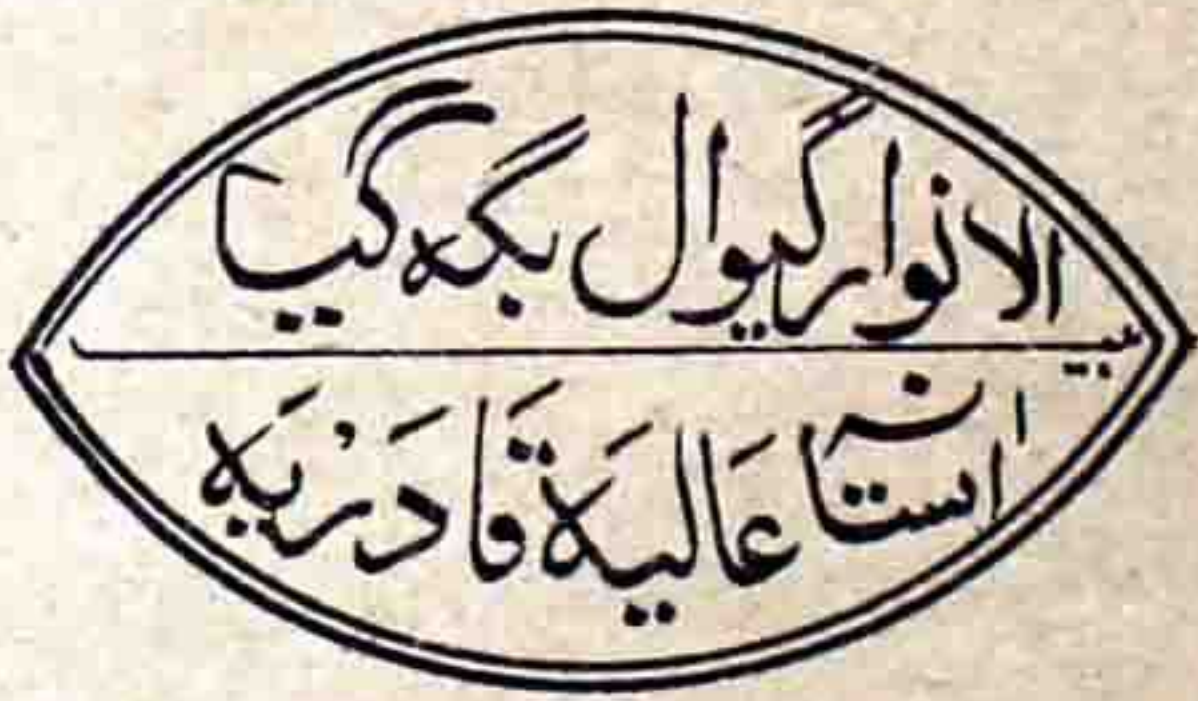 بیت الانوار گیوال بگہ گیا
آستانہ عالیہ قادریہ